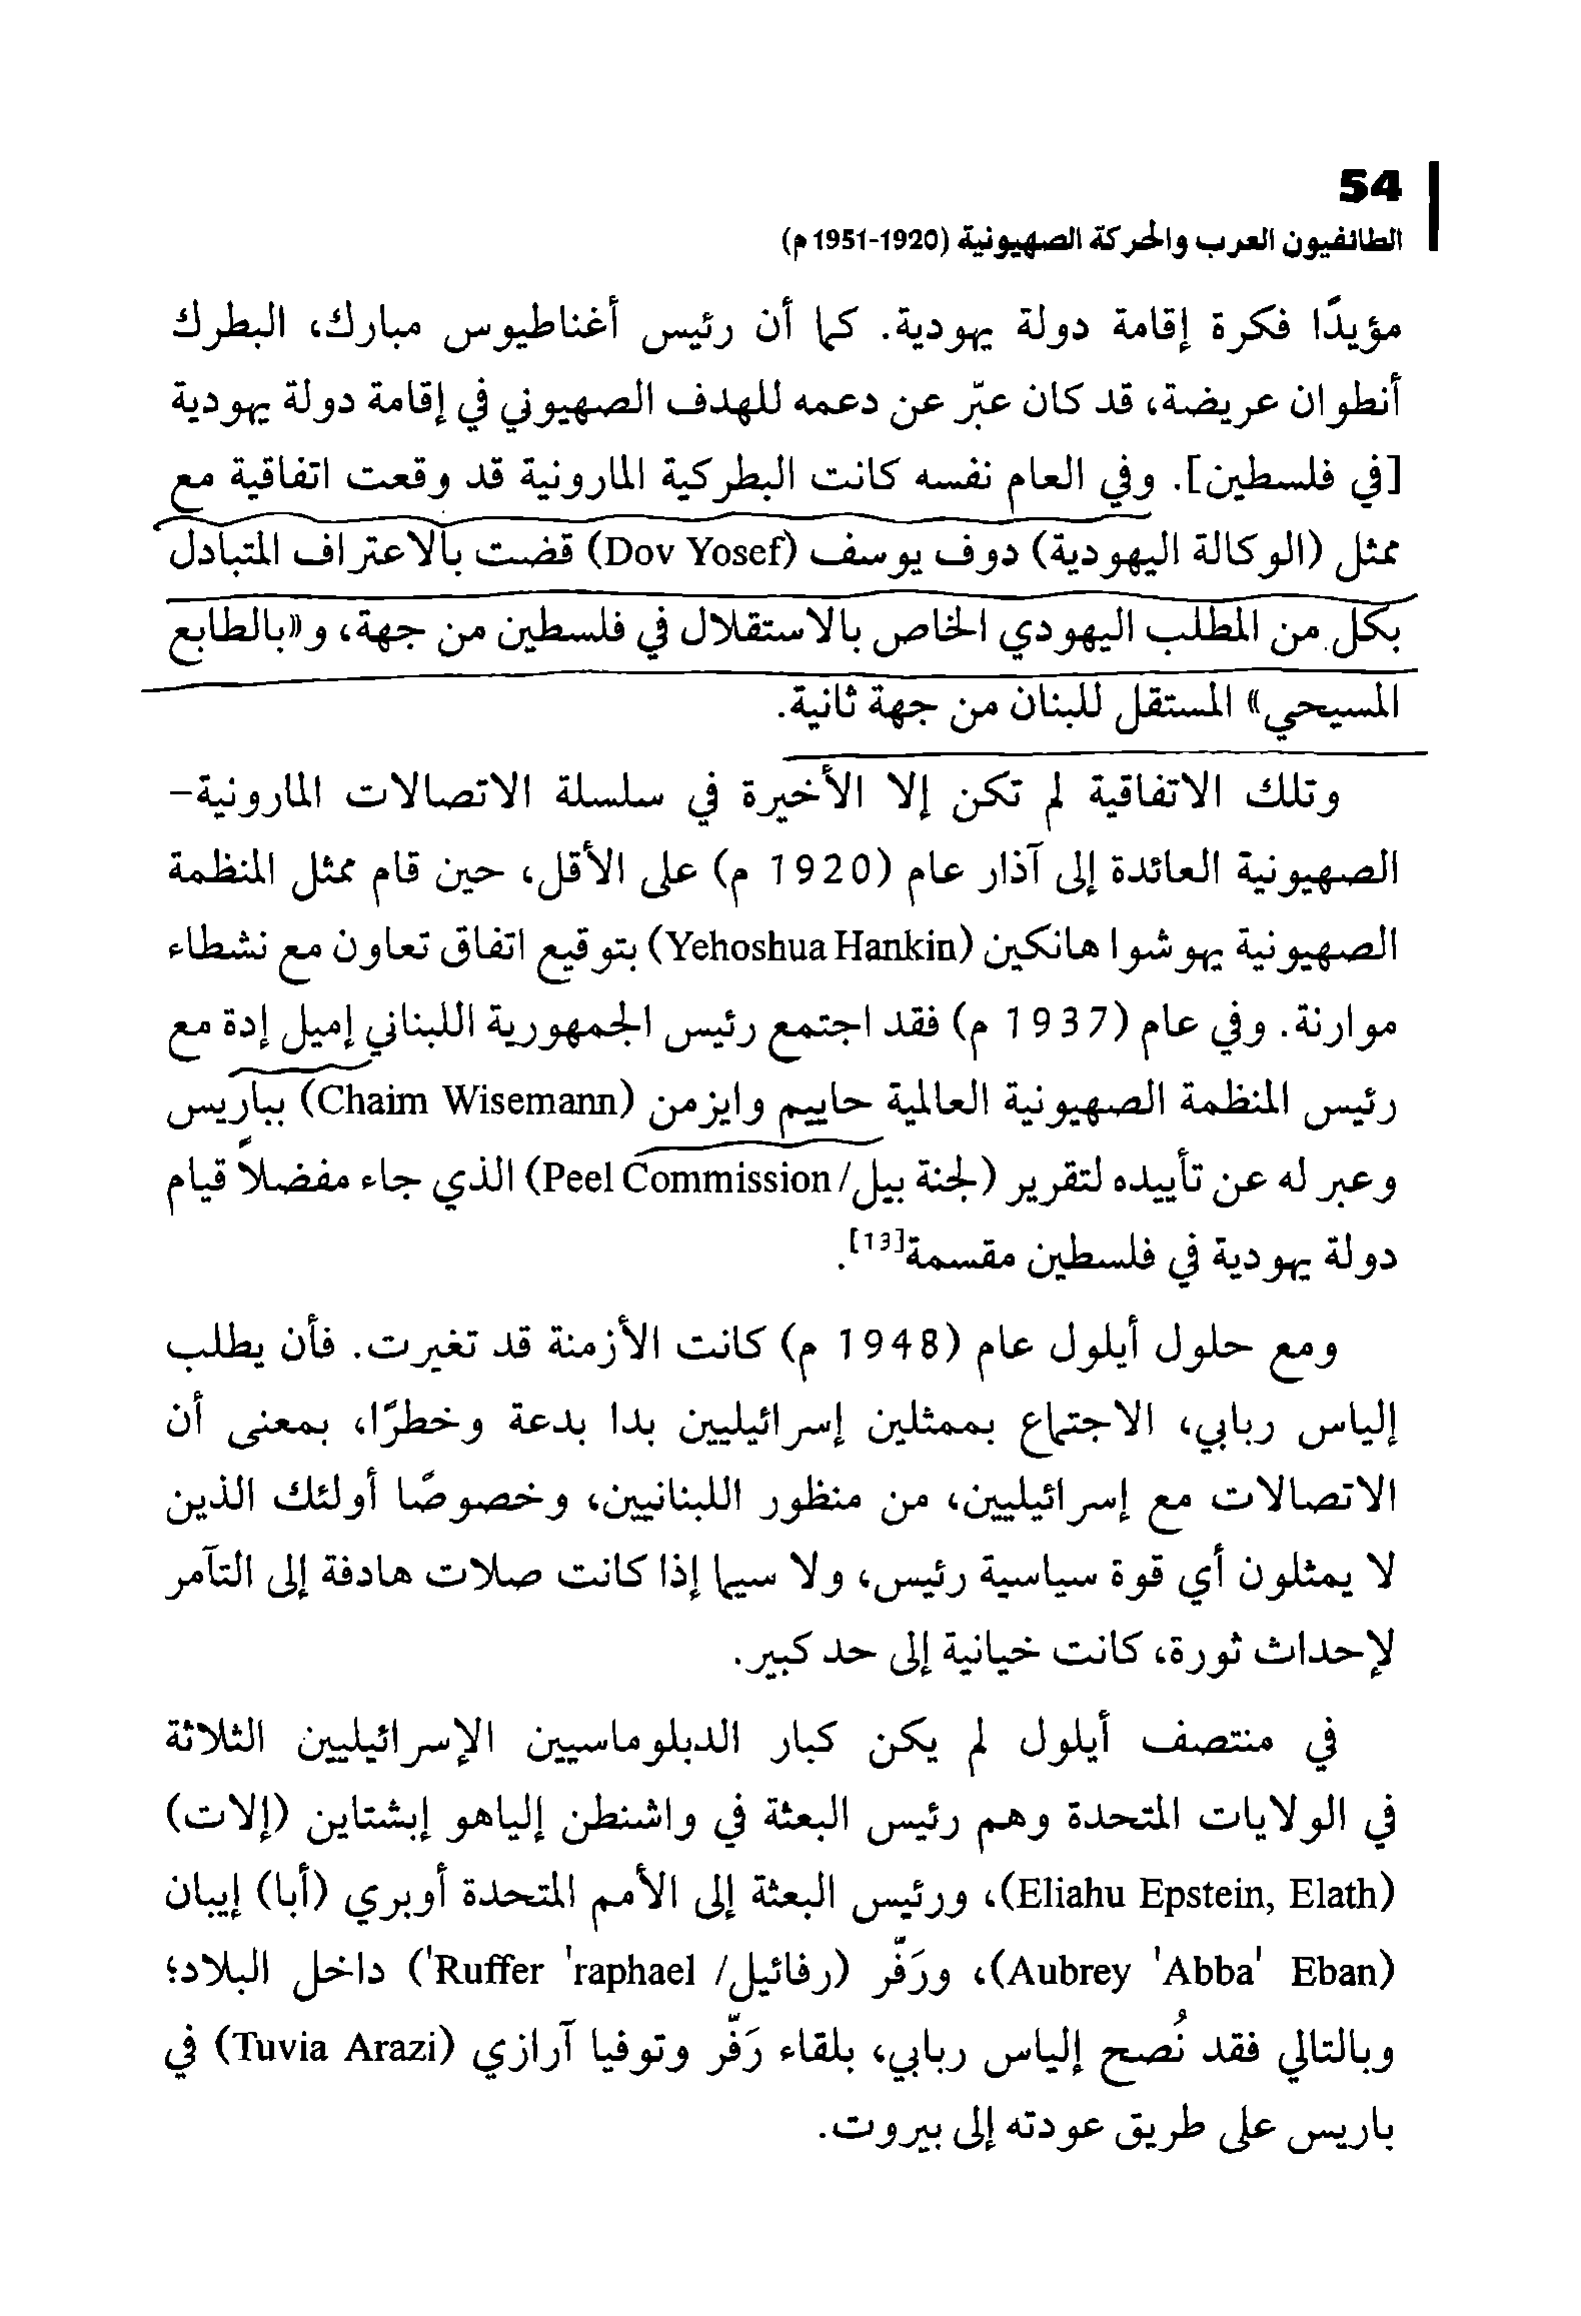 54
الطائفيون العرب والحركة الصهيونية (1920-1951 م)
مؤيدًا فكرة إقامة دولة يهودية. كما أن رئيس أغناطيوس مبارك، البطرك
أنطوان عريضة، قد كان عبّر عن دعمه للهدف الصهيوني في إقامة دولة يهودية
[في فلسطين]. وفي العام نفسه كانت البطركية المارونية قد وقعت اتفاقية مع
ممثل (الوكالة اليهودية) دوف يوسف (Dov Yosef) قضت بالاعتراف المتبادل
بكل من المطلب اليهودي الخاص بالاستقلال في فلسطين من جهة، و«بالطابع
المسيحي» المستقل للبنان من جهة ثانية.
وتلك الاتفاقية لم تكن إلا الأخيرة في سلسلة الاتصالات المارونية-
الصهيونية العائدة إلى آذار عام (1920 م) على الأقل، حين قام ممثل المنظمة
الصهيونية يهوشوا هانكين (Yehoshua Hankin) بتوقيع اتفاق تعاون مع نشطاء
موارنة. وفي عام (1937 م) فقد اجتمع رئيس الجمهورية اللبناني إميل إدة مع
رئيس المنظمة الصهيونية العالمية حاييم وايزمن (Chaim Wisemann) بباريس
وعبر له عن تأييده لتقرير (لجنة بيل/Peel Commission) الذي جاء مفضلاً قيام
دولة يهودية في فلسطين مقسمة[13].
ومع حلول أيلول عام (1948 م) كانت الأزمنة قد تغيرت. فأن يطلب
إلياس ربابي، الاجتماع بممثلين إسرائيليين بدا بدعة وخطرًا، بمعنى أن
الاتصالات مع إسرائيليين، من منظور اللبنانيين، وخصوصًا أولئك الذين
لا يمثلون أي قوة سياسية رئيس، ولا سيما إذا كانت صلات هادفة إلى التآمر
لإحداث ثورة، كانت خيانية إلى حد كبير.
في منتصف أيلول لم يكن كبار الدبلوماسيين الإسرائيليين الثلاثة
في الولايات المتحدة وهم رئيس البعثة في واشنطن إلياهو إبشتاين (إلات)
(Eliahu Epstein, Elath)، ورئيس البعثة إلى الأمم المتحدة أوبري (أبا) إيبان
(Aubrey 'Abba' Eban)، ورَفّر (رفائيل/ Ruffer 'raphael') داخل البلاد؛
وبالتالي فقد نُصح إلياس ربابي، بلقاء رَفّر وتوفيا آرازي (Tuvia Arazi) في
باريس على طريق عودته إلى بيروت.